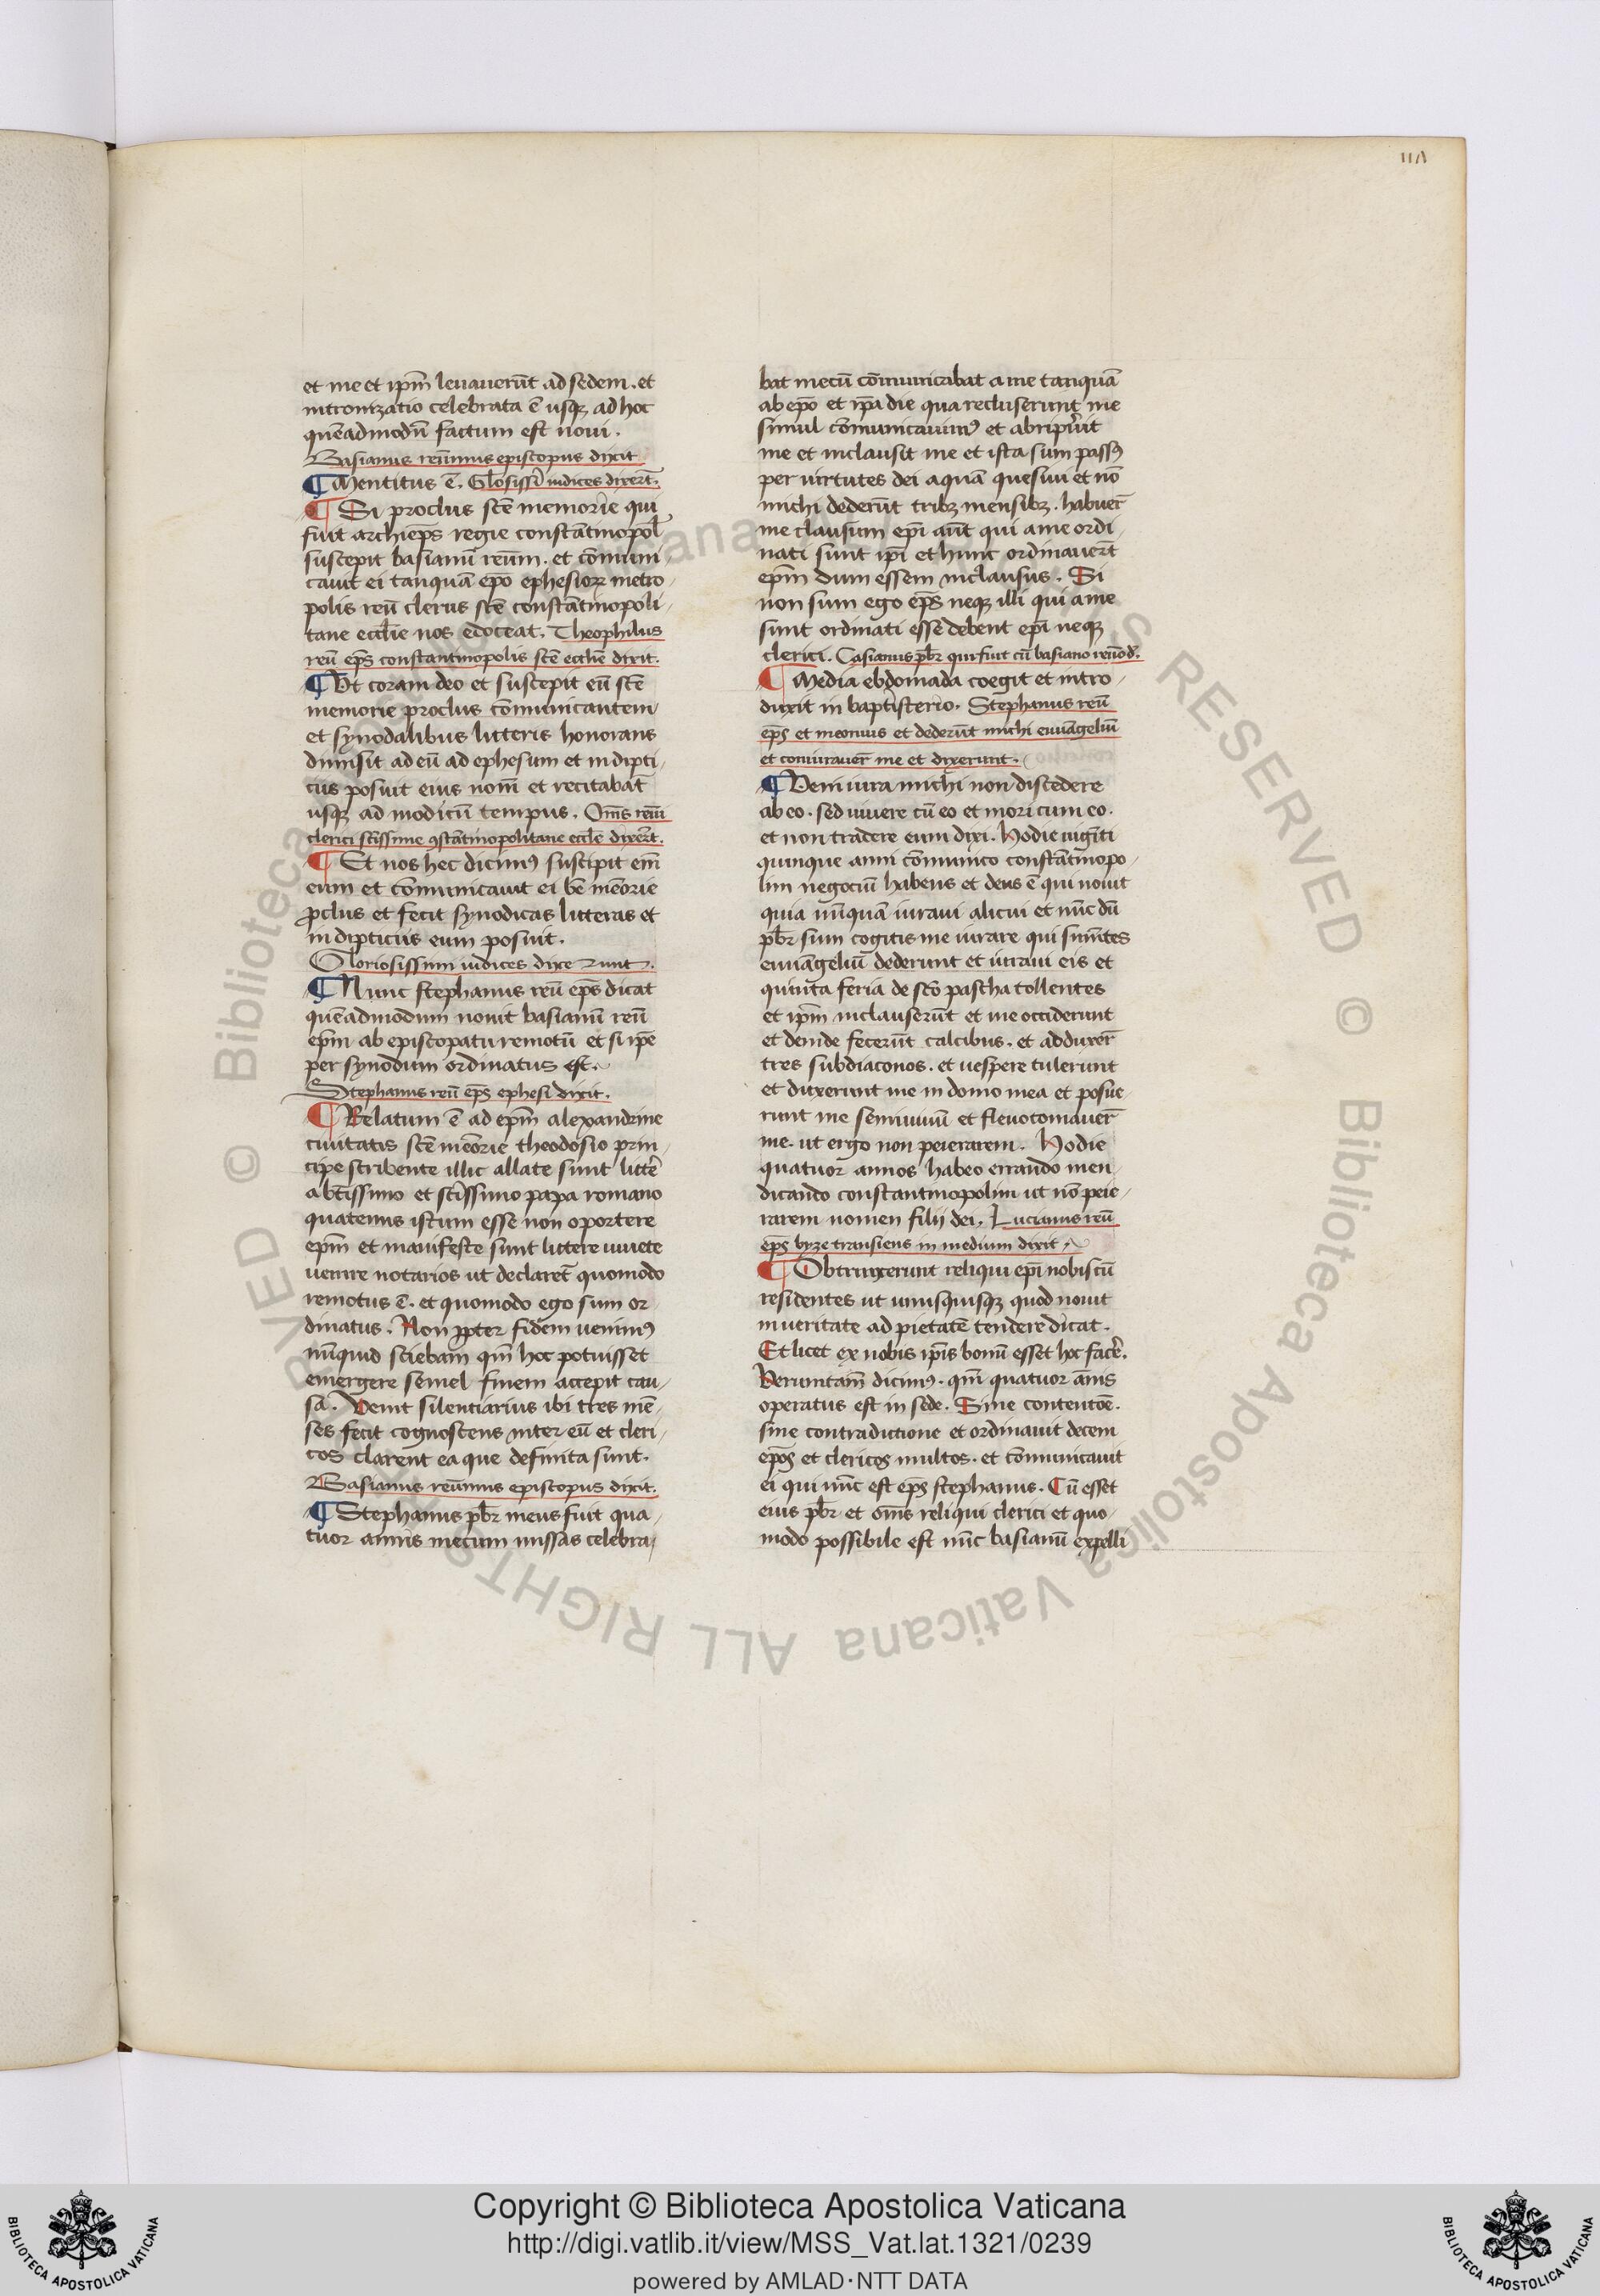 118
et me et ipm̄ leuauerūt ad sedem. et
intronizatio celebrata ē usqꝫ ad hoc
quēadmodū factum est noui.
Basianus reūmus episcopus dixit
¶ Mentitus ē. Glosissī iudices dixert̄.
¶ Si proclus scē memorie qui
fuit archiep̄s regie constātinopol̄
suscepit basianū reūm. et cōmuni
cauit ei tanquā epō ephesioꝝ metro
polis reū clerus scē constātinopoli
tane ecclīe nos edoceat. Theophilus
reū ep̄s constantinopolis scē ecclīe dixit.
¶ Vt coram deo et suscepit eū scē
memorie proclus cōmunicantem
et synodalibus litteris honorans
dimisit ad eū ad ephesum et in dipti
cis posuit eius nom̄ et recitabat̄
usqꝫ ad modicū tempus. Om̄s reūi
clerici sctīssime ꝯstātinopolitane ecclīe dixert̄.
¶ Et nos hec dicimꝰ suscipit em̄
eum et cōmunicauit ei bē mēorie
ꝓclus et fecit synodicas litteras et
in dipticis eum posuit.
Gloriosissimi iudices dixerunt.
¶ Nunc stephanus reū ep̄s dicat
quēadmodum nouit basianū reū
ep̄m ab episcopatu remotū et si ipē
per synodum ordinatus est.
Stephanus reū ep̄s ephesi dixit.
¶ Relatum ē ad ep̄m alexandrine
ciuitatis scē mēorie theodosio prin
cipe scribente illic allate sunt litterē
a btīssimo et sctīssimo papa romano
quatenus istum esse non oportere
ep̄m et manifeste sunt littere iuuete
uenire notarios ut declaret̄ quomodo
remotus ē. et quomodo ego sum or
dinatus. Non ꝓpter fidem uenimꝰ
nūquid sciebam qm̄ hoc potuisset
emergere semel finem accepit cau
sā. Venit silentiarius ibi tres mē
ses fecit cognoscens inter eū et cleri
cos clarent ea que definita sunt.
Basianus reūmus episcopus dixit.
¶ Stephanus pb̄r meus fuit qua
tuor annis mecum missas celebra
bat mecū cōmunicabat a me tanquā
ab epō et ipā die qua recluserunt me
simul cōmunicauimꝰ et abripuit
me et inclausit me et ista sum passꝰ
per uirtutes dei aquā quesiui et nō
michi dederūt tribꝫ mensibꝫ. habuer̄
me clausum epī aūt qui a me ordi
nati sunt ipī et hunc ordinauert̄
ep̄m dum essem inclausus. Si
non sum ego ep̄s neqꝫ illi qui a me
sunt ordinati esse debent epī neqꝫ
clerici. Casianus pb̄r qui fuit cū basiano reūo d̄.
¶ Media ebdomada coegit et intro
duxit in baptisterio. Stephanus reū
ep̄s et meonius et dederūt michi euuāgeliū
et coniurauer̄ me et dixerunt.
¶ Veni iura michi non discedere
ab eo. sed uiuere cū eo et mori cum eo.
et non tradere eum dixi. Hodie uigīti
quinque anni cōmunico constātinopo
lim negociū habens et deus ē qui nouit
quia nūquā iuraui alicui et nūc dū
pb̄r sum cogitis me iurare qui sum̄tes
euuāgeliū dederunt et iuraui eis et
quinta feria de scō pascha tollentes
et ipm̄ inclauserūt et me occiderunt
et deinde fecerūt calcibus. et adduxer̄
tres subdiaconos. et uespere tulerunt
et duxerunt me in domo mea et posue
runt me seminiuum et fleuotomauer̄
me. ut ergo non peierarem. Hodie
quatuor annos habeo errando men
dicando constantinopolim ut nō peie
rarem nomen filij dei. Lucianus reū
ep̄s byze transiens in medium dixit.
¶ Obtinxerunt reliqui epī nobiscū
residentes ut unusquisqꝫ quod nouit
in ueritate ad pietatē tendere dicat.
Et licet ex nobis ip̄is bonū esset hoc facē.
Verumtam̄ dicimꝰ. qm̄ quatuor ānis
operatus est in sede. Sine contentōe.
sine contradictione et ordinauit decem
ep̄os et clericos multos. et cōmunicauit
ei qui nūc est ep̄s stephanus. Cū esset
eius pb̄r et om̄s reliqui clerici et quo
modo possibile est nūc basianū expelli
Copyright © Biblioteca Apostolica Vaticana
http://digi.vatlib.it/view/MSS_Vat.lat.1321/0239
powered by AMLAD·NTT DATA
BIBLIOTECA APOSTOLICA VATICANA
BIBLIOTECA APOSTOLICA VATICANA
© Biblioteca Apostolica Vaticana ALL RIGHTS RESERVED